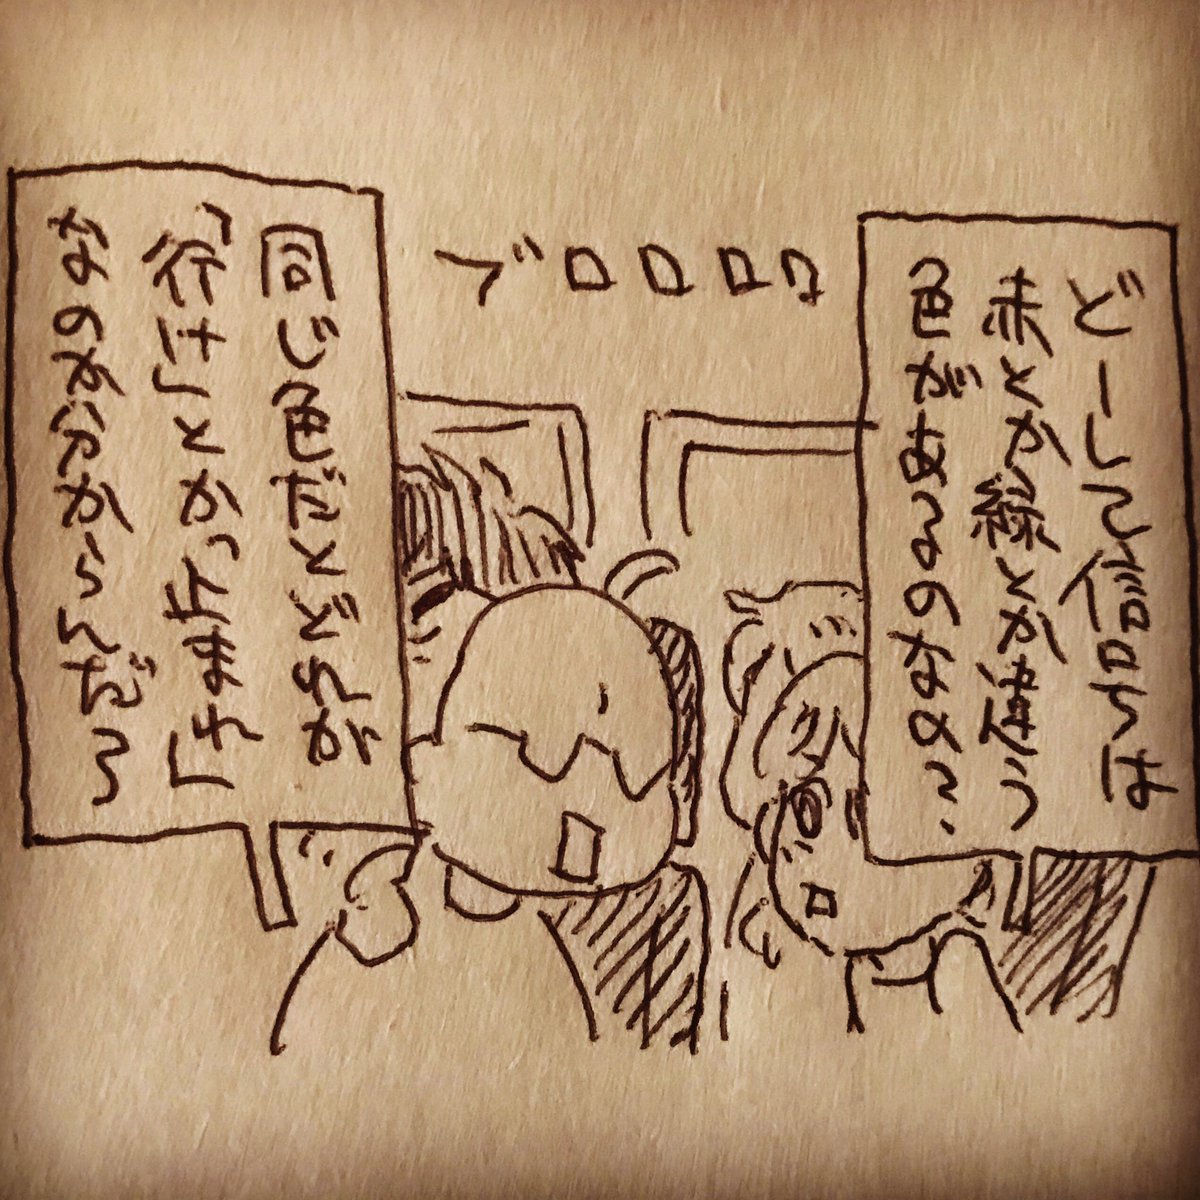 ブロロロロ
どーして信号は
赤とか緑とか使う
色があるのなの?
同じ色だとどれが
「行け」とか「止まれ」
なのかわからんだろ